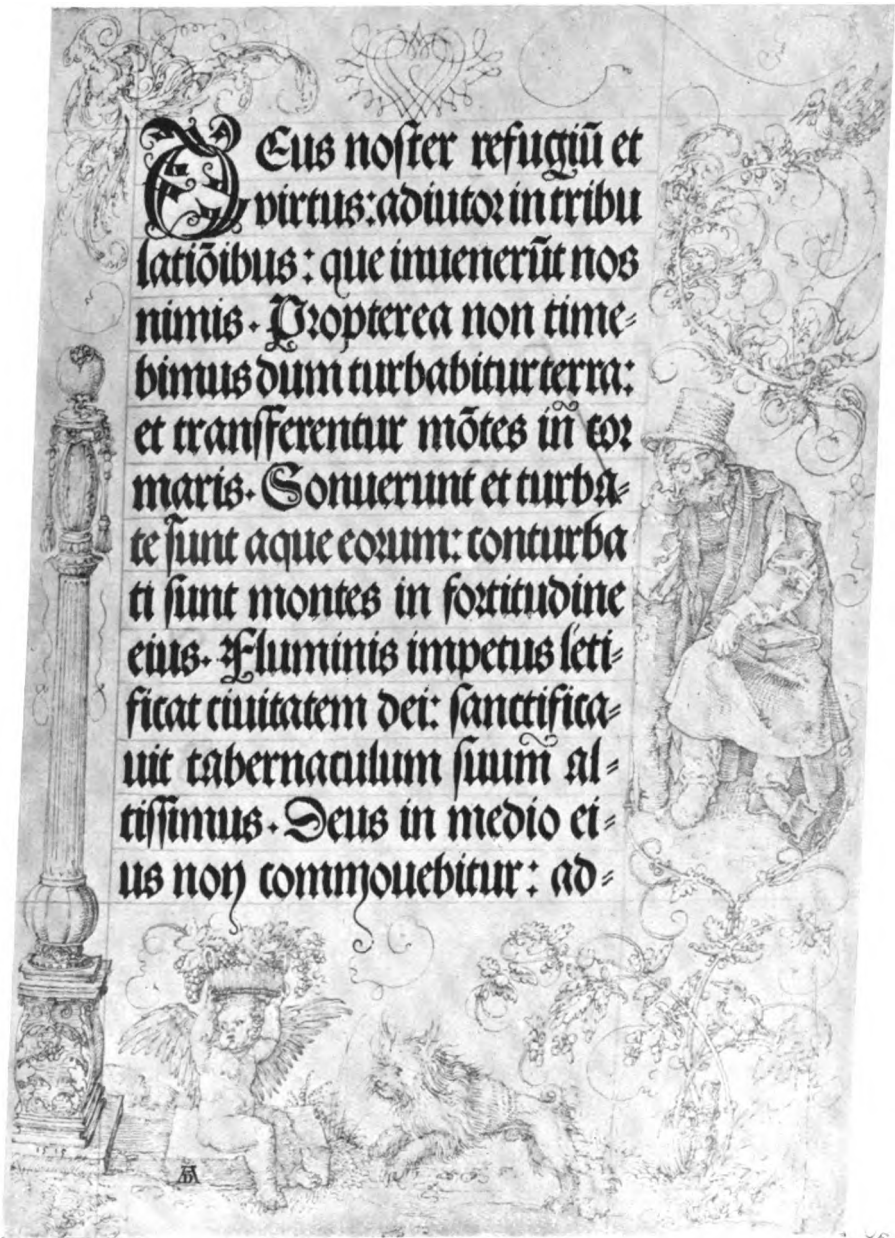 DEus noſter refugiū et
virtus: adiutor in tribu
latiōibus: que inuenerūt nos
nimis. Propterea non time⸗
bimus dum turbabitur terra:
et tranſferentur mōtes in̄ cor
maris. Sonuerunt et turba⸗
te ſunt aque eorum: conturba
ti ſunt montes in fortitudine
eius. Fluminis impetus leti⸗
ficat ciuitatem dei: ſanctifica⸗
uit tabernaculum ſuum̄ al⸗
tiſſimus. Deus in medio ei⸗
us non commouebitur: ad⸗
1515
AD